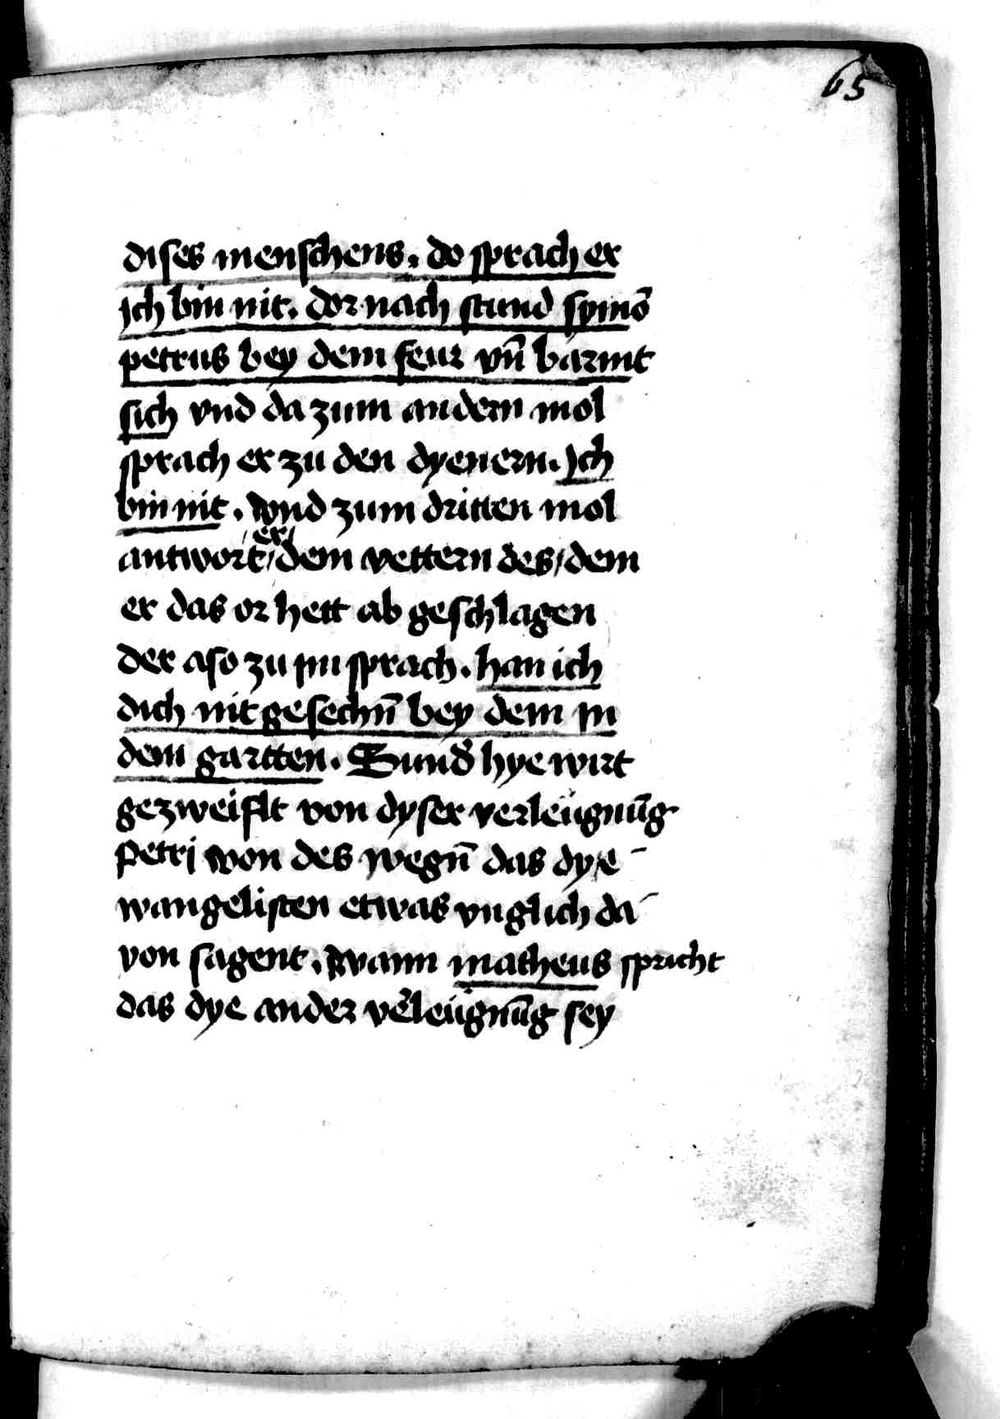 65
dises menschens. do sprach er
Jch bin nit. dor nach stund symō
petrus bey dem feur vn̄ bármt
sich vnd da zum andern mol
sprach er zu den dyenern. Jch
bin nit. Wnd zum dritten mol
er
antwort dem vettern des dem
er das or hett ab geschlagen
der aso zu im sprach. han ich
dich nit gesechn̄ bey dem in
dem gartten. Sund hye wirt
gezweiflt von dyser verleügnūg
petri won des wegn̄ das dye
wangelisten etwas vnglich da
von sagent. Wann matheus spricht
das dye ander v̉leügnūg sey